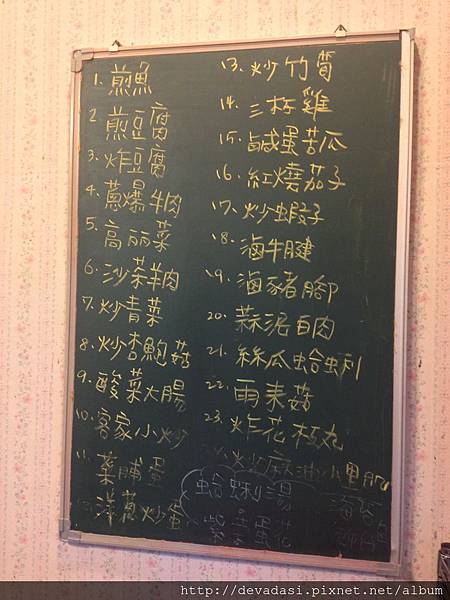 1. 煎魚
2. 煎豆腐
3. 炸豆腐
4. 蔥爆牛肉
5. 高丽菜
6. 沙茶羊肉
7. 炒青菜
8. 炒杏鮑菇
9. 酸菜大腸
10. 客家小炒
11. 菜脯蛋
12. 洋蔥炒蛋
13. 炒竹筍
14. 三杯雞
15. 鹹蛋苦瓜
16. 紅燒茄子
17. 炒蝦子
18. 滷牛腱
19. 滷豬腳
20. 蒜泥白肉
21. 絲瓜蛤蜊
22. 雨来菇
23. 炸花枝丸
炒麻油小里肌
蛤蜊湯
紫菜蛋花
http://devadasi.pixnet.net/album